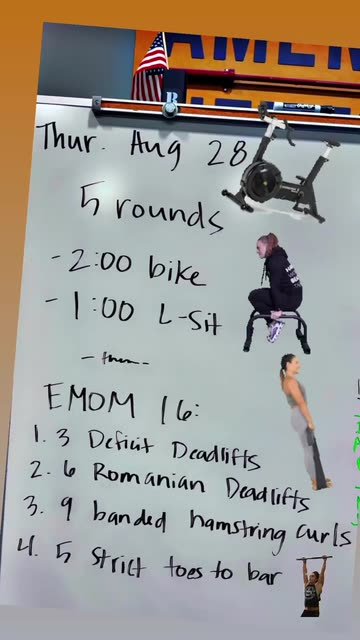 Thur. Aug 28
5 rounds
- 2:00 bike
- 1:00 L-Sit
- then -
EMOM 16:
1. 3 Deficit Deadlifts
2. 6 Romanian Deadlifts
3. 9 banded hamstring curls
4. 5 strict toes to bar